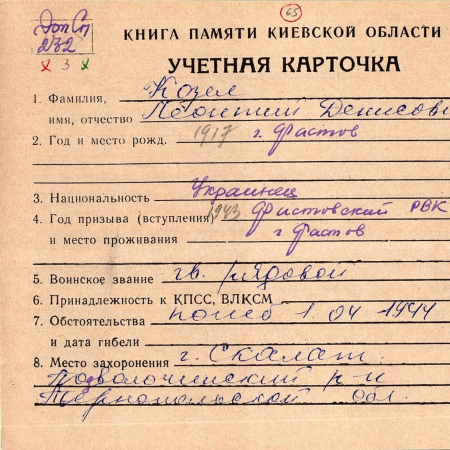 65
Доп Сп
232
х 3 х
КНИГА ПАМЯТИ КИЕВСКОЙ ОБЛАСТИ
УЧЕТНАЯ КАРТОЧКА
1. Фамилия, Козел
имя, отчество Леонтий Денисови
2. Год и место рожд. 1917 г. Фастов
3. Национальность Украинец
4. Год призыва (вступления) 1943 Фастовский РВК
и место проживания г Фастов
5. Воинское звание гв. рядовой
6. Принадлежность к КПСС, ВЛКСМ
7. Обстоятельства погиб 1.04 1944
и дата гибели
8. Место захоронения г. Скалат.
Подволочиский р-н
Тернопольской обл.